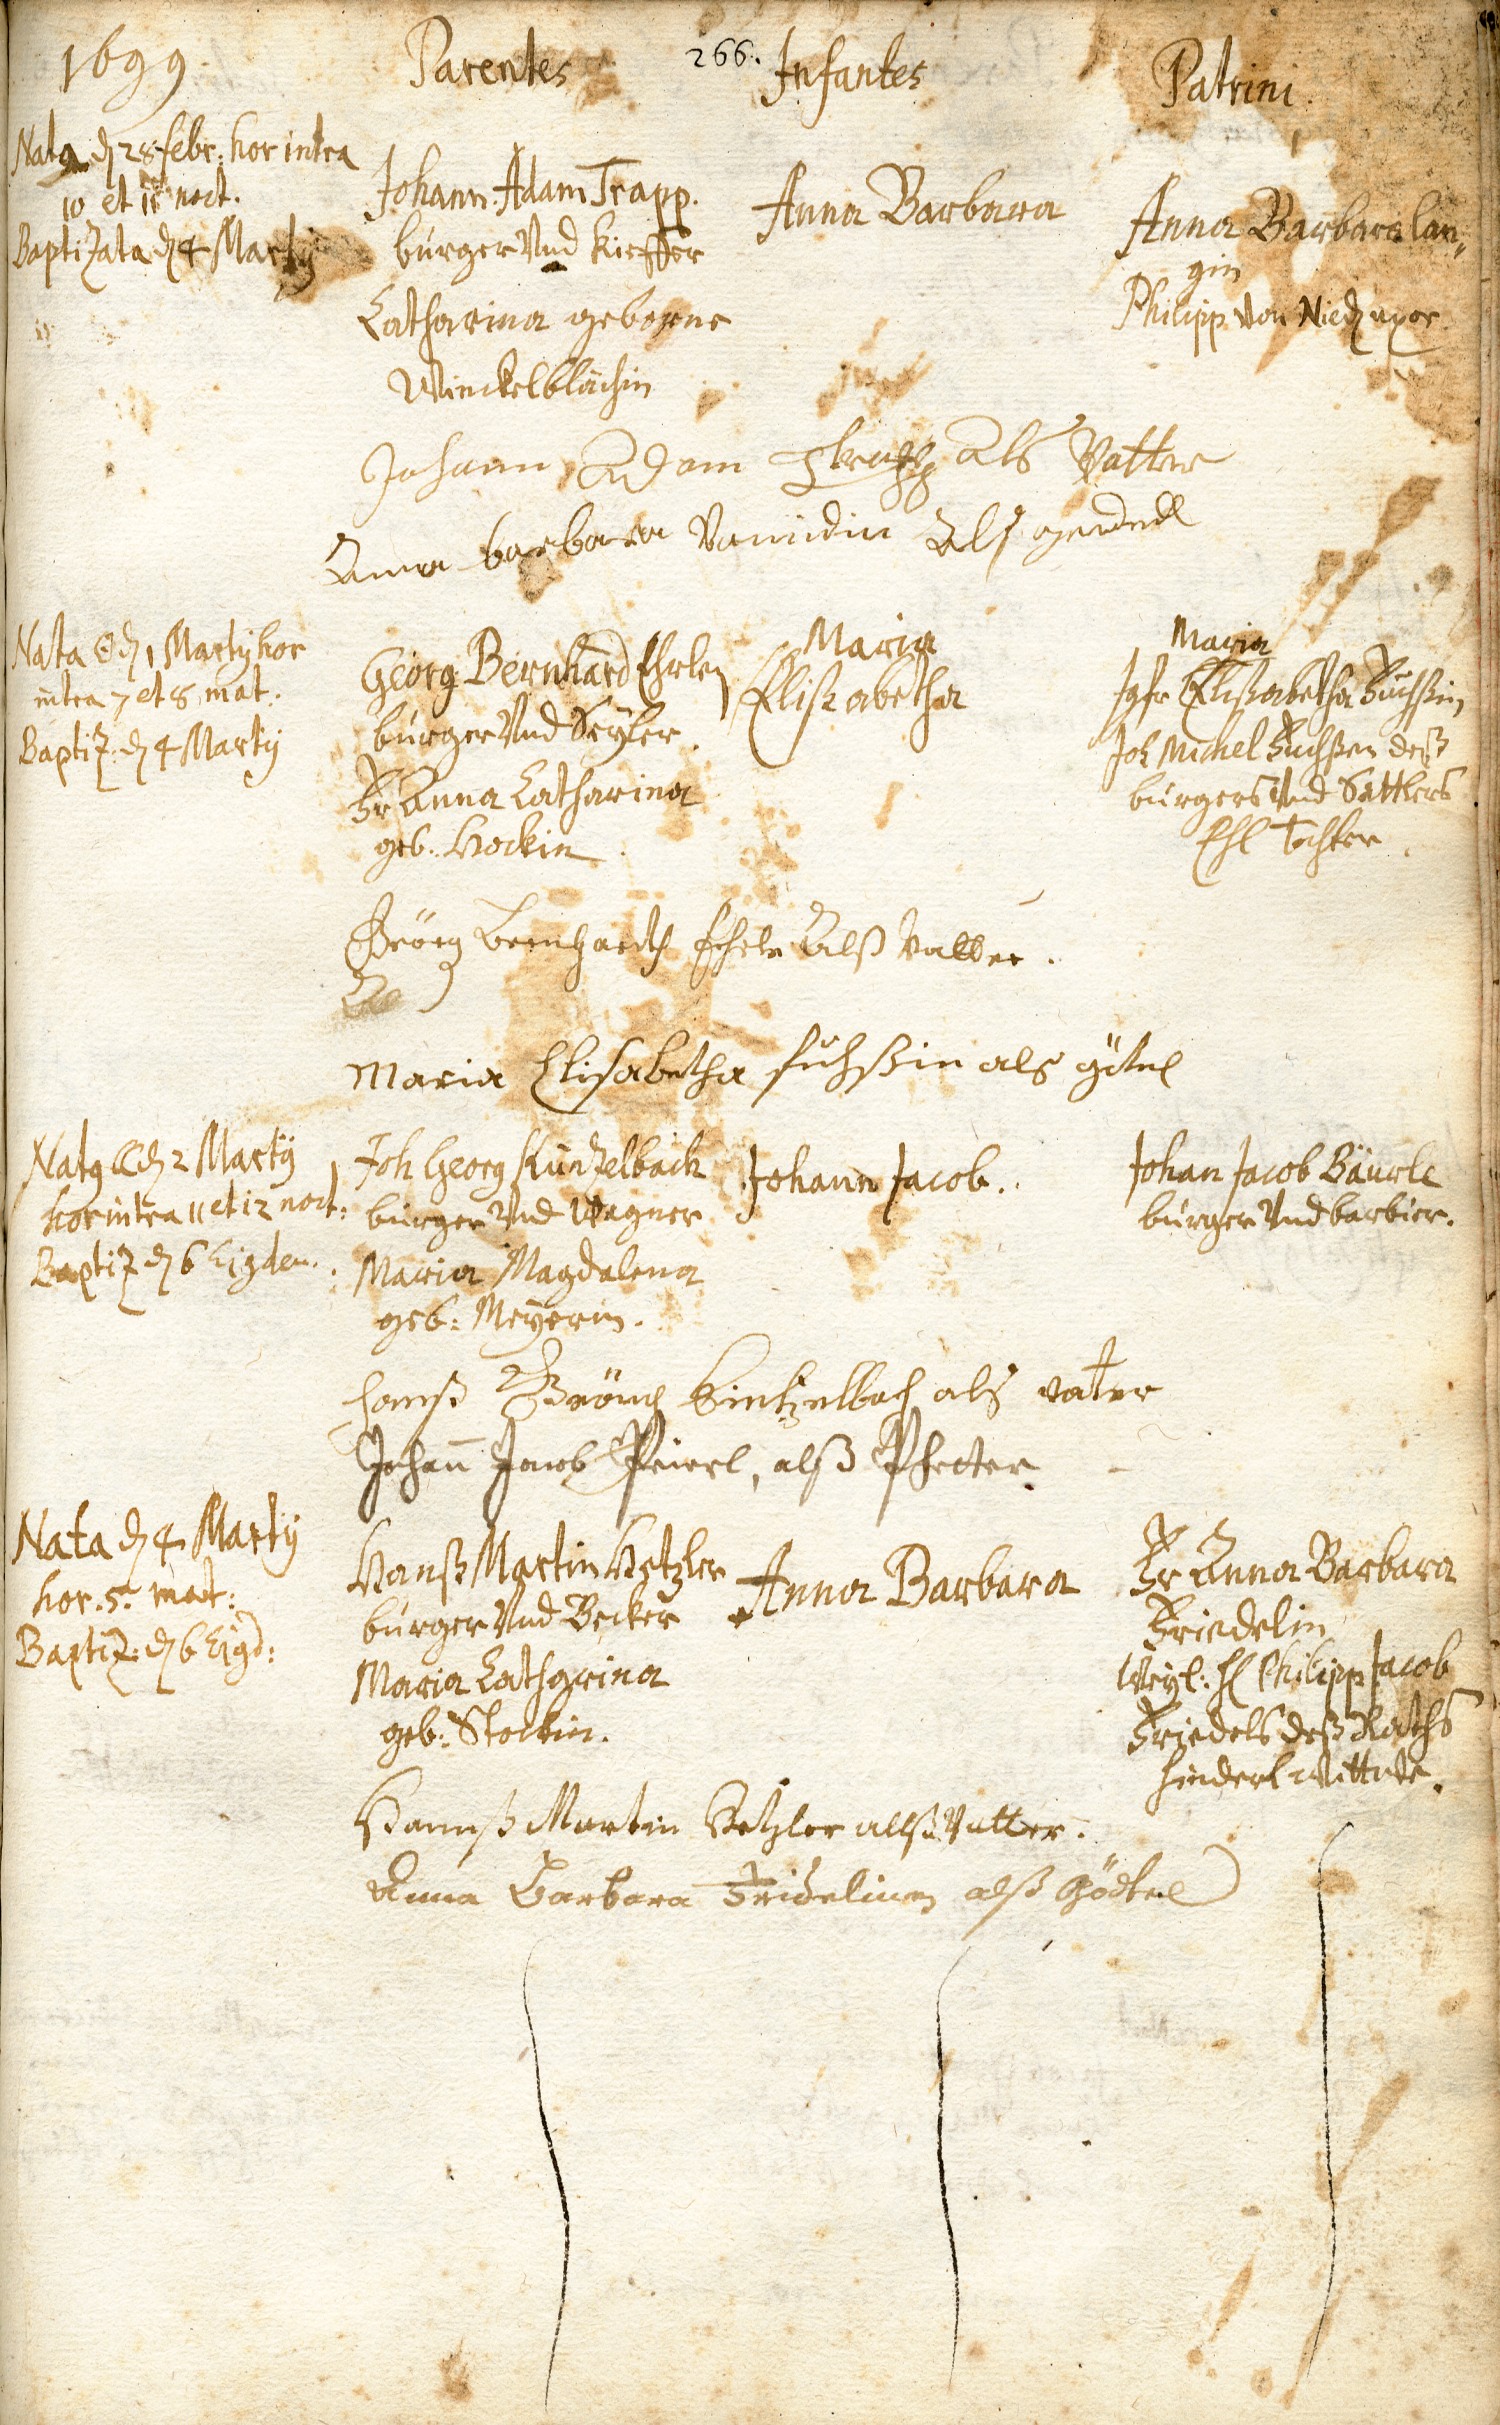 1699.
Parentes
266.
Infantes
Patrini.
Nata d 28 febr: hor intra
10 et 11 noct.
Baptizata d 4 Martÿ
Johann Adam Trapp.
burger Vnd Kieffer
Catharina geborne
Winckelblächin
Anna Barbara
Anna Barbara lan-
gin
Philipp von Nied uxor
Johann Adam als Vatter
Anna barbara Als
Nata d 1 Martÿ hor
intra 7 et 8 mat:
Baptiz: d 4 Martÿ
Georg Bernhard Ehrlen
burger Vnd Seÿler.
Fr Anna Catharina
geb. Hockin
Maria
Elisabetha
Maria
Jgfr Elisabetha Fuchßin
Joh Michel Fuchßen deß
burgers Vnd Sattlers
Ehl Tochter
Geörg Bernhardt Ehrle Alß Vatter.
Maria Elisabetha fuchßin als götel
Nat9 d 2 Martÿ
hor intra 11 et 12 noct:
Baptiz d 6 Eigden.
Joh Georg Künzelbach
burger Vnd Wagner
Maria Magdalena
geb: Meÿerin.
Johann Jacob.
Johan Jacob Bäurle
burger Vnd barbier.
hanß Geörg Kintzelbach als vatter
Johan̄ Jacob Peierl, alß Pfetter
Nata d 4 Martÿ
hor. 5. mat:
Baptiz: d 6 Eigd:
Hanß Martin Hetzler
burger Vnd Becker
Maria Catharina
geb: Stockin.
Anna Barbara
Fr Anna Barbara
Friedelin
Weÿl: H Philipp Jacob
Friedels deß Raths
hinderl Wittwe.
Hannß Martin Hetzler allß Vatter.
Anna Barbara Fridelinen alß Gödtel